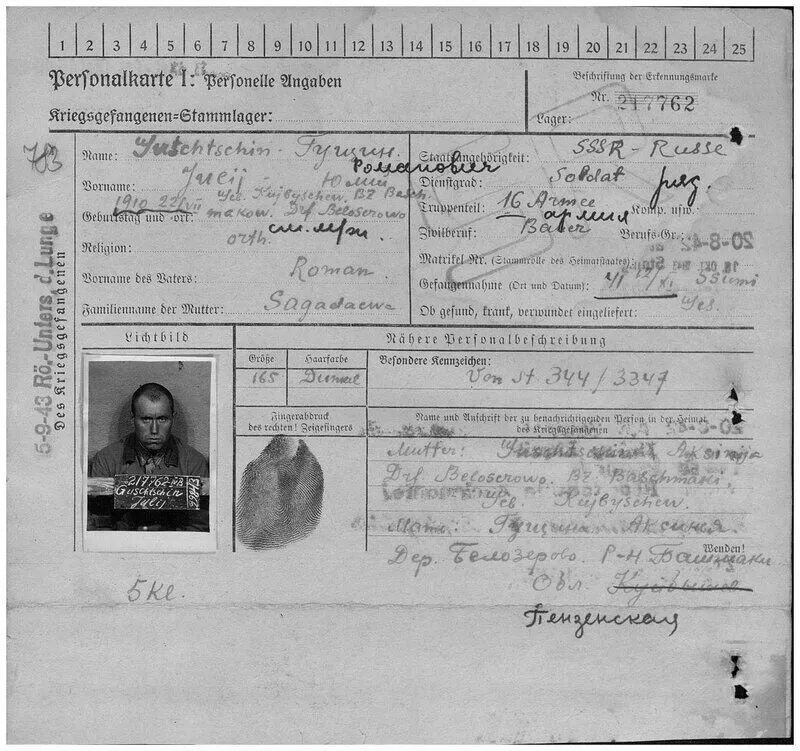 1 2 3 4 5 6 7 8 9 10 11 12 13 14 15 16 17 18 19 20 21 22 23 24 25
Personalkarte I: Personelle Angaben
Kriegsgefangenen-Stammlager:
Beschriftung der Erkennungsmarke
Nr. 217762
Lager:
783
5-9-43 Rö.-Unters. d. Lunge
Des Kriegsgefangenen
Name: Guschtschin - Гущин.
Романович
Vorname: Julij Юлий
1910 22/VII Geb. Kujbyschew. Bz Basch-
Geburtstag und -ort: makow. Drf Beloserowo
Religion: orth. см. м/ж.
Vorname des Vaters: Roman
Familienname der Mutter: Sagadaewa
Staatsangehörigkeit: SSSR - Russe
Dienstgrad: Soldat ряд.
Truppenteil: 16 Armee Komp. usw.
армия
Zivilberuf: Bauer Berufs-Gr.:
20-8-42
Matrikel Nr. (Stammrolle des Heimatstaates)
Gefangennahme (Ort und Datum): Ssumi
Ob gesund, krank, verwundet eingeliefert: Ges.
Lichtbild
Nähere Personalbeschreibung
Größe Haarfarbe Besondere Kennzeichen:
165 Dunkel Von St. 344/3347
Fingerabdruck
des rechten! Zeigefingers
Name und Anschrift der zu benachrichtigenden Person in der Heimat
des Kriegsgefangenen
217762
Guschtschin
Julij
Mutter: Guschtschina Aksinija
Drf Beloserowo. Bz Baschmaki.
Geb. Kujbyschew.
Мать: Гущина Аксинья.
Wenden!
Дер. Белозерово. Р-Н Башмаки
Обл. Куйбышев
Пензенская
5 Kl.